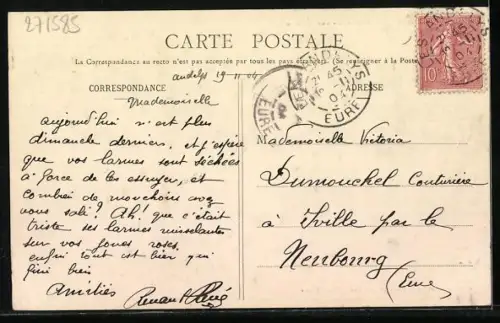 271585
CARTE POSTALE
La Correspondance au recto n'est pas acceptée par tous les pays étrangers. (Se renseigner à la Poste)
CORRESPONDANCE
ADRESSE
andelys 19 11 04
Mademoiselle
aujourd'hui n'est plus
dimanche derniers, et j'espère
que vos larmes sont séchées
à force de les essuyer, et
combien de mouchoirs avez
vous sali? Ah! que c'était
triste ses larmes ruisselantes
sur vos joues roses.
enfin tout est bien qui
fini bien
Amitiés
René
Mademoiselle Victoria
Dumouchel Couturière
à Iville par le
Neubourg
Eure
LES ANDELYS
EURE
10